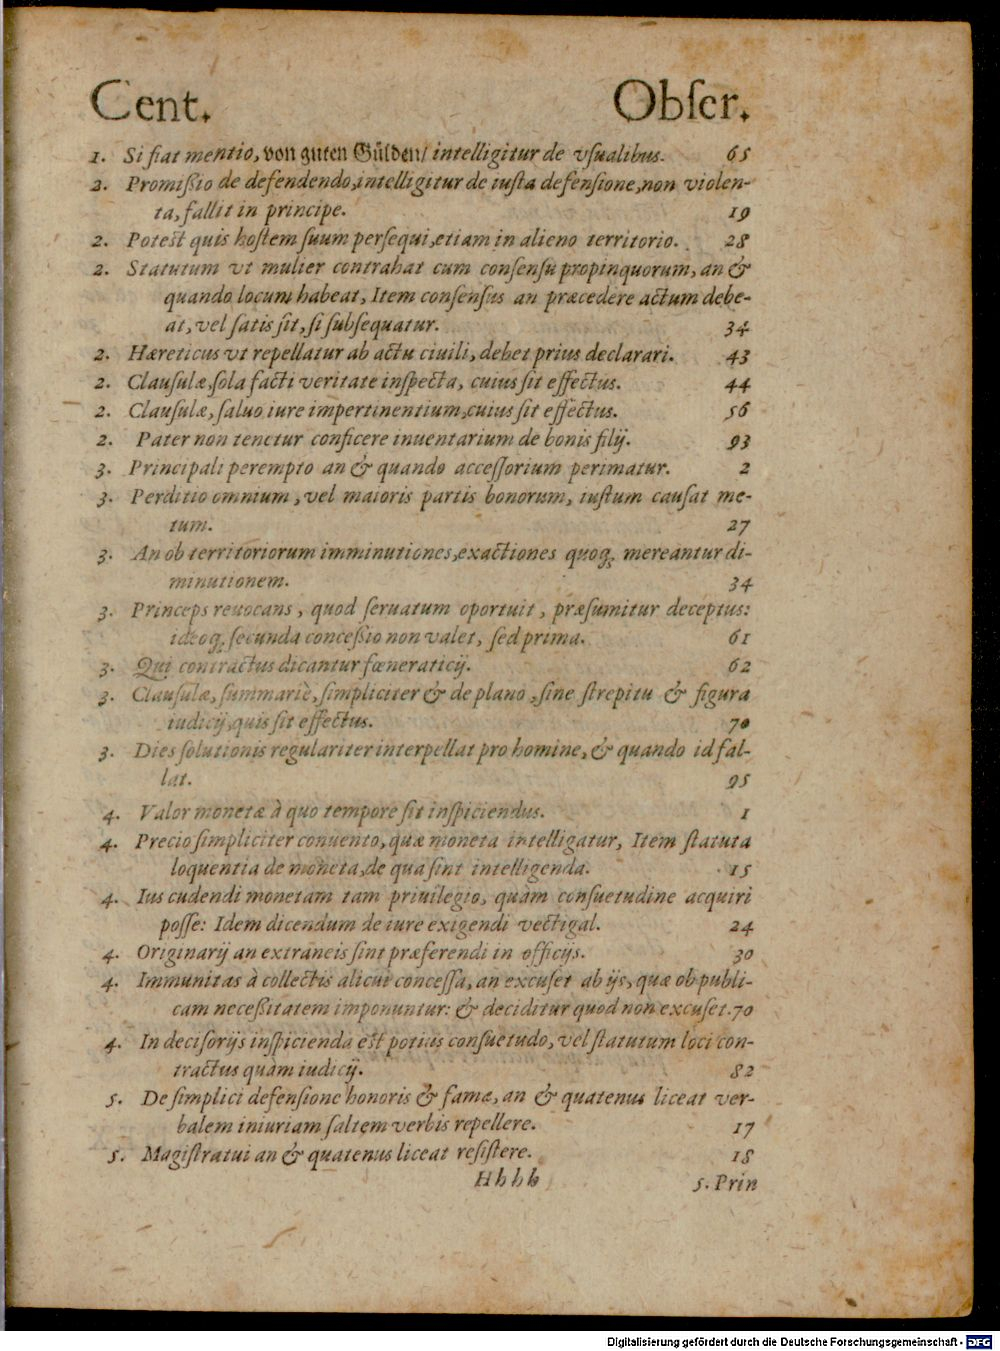 Cent. Obſer.
1. Si fiat mentio, von guten Gülden/ intelligitur de vſualibus. 65
2. Promiſsio de defendendo, intelligitur de iuſta defenſione, non violen-
ta, fallit in principe. 19
2. Poteſt quis hoſtem ſuum perſequi, etiam in alieno territorio. 28
2. Statutum vt mulier contrahat cum conſenſu propinquorum, an &
quando locum habeat, Item conſenſus an præcedere actum debe-
at, vel ſatis ſit, ſi ſubſequatur. 34
2. Hæreticus vt repellatur ab actu ciuili, debet prius declarari. 43
2. Clauſulæ, ſola facti veritate inſpecta, cuius ſit effectus. 44
2. Clauſulæ, ſaluo iure impertinentium, cuius ſit effectus. 56
2. Pater non tenetur conficere inuentarium de bonis filij. 93
3. Principali perempto an & quando acceſſorium perimatur. 2
3. Perditio omnium, vel maioris partis bonorum, iuſtum cauſat me-
tum. 27
3. An ob territoriorum imminutiones, exactiones quoq; mereantur di-
minutionem. 34
3. Princeps reuocans, quod ſeruatum oportuit, præſumitur deceptus:
ideoq; ſecunda conceſsio non valet, ſed prima. 61
3. Qui contractus dicantur fœneraticij. 62
3. Clauſulæ, ſummariè, ſimpliciter & de plano, ſine ſtrepitu & figura
iudicij, quis ſit effectus. 70
3. Dies ſolutionis regulariter interpellat pro homine, & quando id fal-
lat. 95
4. Valor monetæ à quo tempore ſit inſpiciendus. 1
4. Precio ſimpliciter conuento, quæ moneta intelligatur, Item ſtatuta
loquentia de moneta, de qua ſint intelligenda. 15
4. Ius cudendi monetam tam priuilegio, quàm conſuetudine acquiri
poſſe: Idem dicendum de iure exigendi vectigal. 24
4. Originarij an extraneis ſint præferendi in officijs. 30
4. Immunitas à collectis alicui conceſſa, an excuſet ab ijs, quæ ob publi-
cam neceſsitatem imponuntur: & deciditur quod non excuſet. 70
4. In deciſorijs inſpicienda eſt potius conſuetudo, vel ſtatutum loci con-
tractus quàm iudicij. 82
5. De ſimplici defenſione honoris & famæ, an & quatenus liceat ver-
balem iniuriam ſaltem verbis repellere. 17
5. Magiſtratui an & quatenus liceat reſiſtere. 18
Hhhh 5. Prin
Digitalisierung gefördert durch die Deutsche Forschungsgemeinschaft - DFG